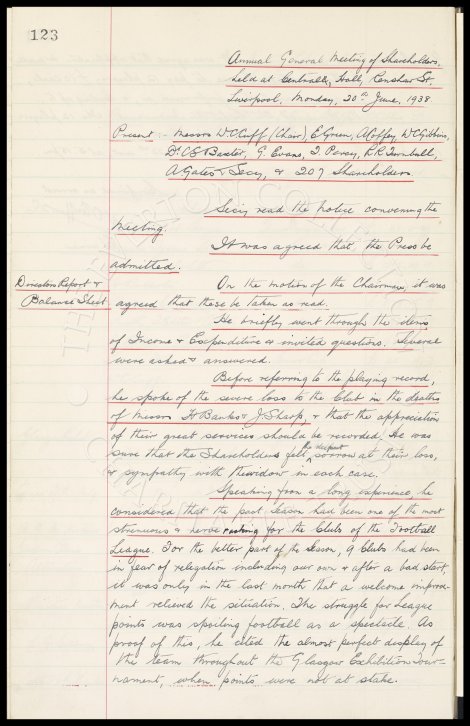 123
Annual General Meeting of Shareholders,
held at Central Hall, Renshaw St.
Liverpool, Monday, 20th June, 1938.
Present :- Messrs W.C.Cuff (Chair), E Green, A Coffey, W C Gibbins,
Dr. C S Baxter, G. Evans, T Percy, R.R. Turnbull,
A Gates & Secy, & 207 Shareholders
Secy read the Notice convening the
meeting.
It was agreed that the Press be
admitted.
Directors Report &
Balance Sheet
On the motion of the Chairman, it was
agreed that these be taken as read.
He briefly went through the items
of Income & Expenditure & invited questions. Several
were asked & answered.
Before referring to the playing record,
he spoke of the severe loss to the Club in the deaths
of Messrs H Banks & J. Sharp, & that the appreciation
of their great services should be recorded, He was
sure that the Shareholders felt the deepest sorrow at their loss,
& sympathy with the widow in each case.
Speaking from a long experience, he
considered that the past Season had been one of the most
strenuous & nerve racking for the Clubs of the Football
League. For the better part of the Season, 9 Clubs had been
in fear of relegation including our own & after a bad start
it was only in the last month that a welcome improve-
ment relieved the situation. The struggle for League
points was spoiling football as a spectacle. As
proof of this, he cited the almost perfect display of
the team throughout the Glasgow Exhibition Tour-
nament, when points were not at stake.
THE EVERTON COLLECTION